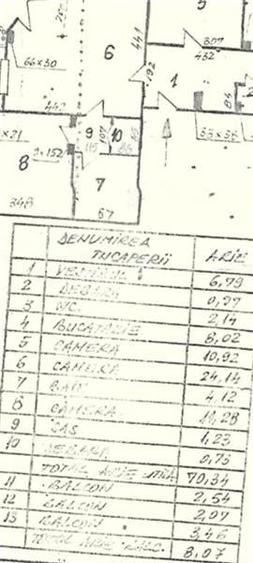 5
6
441
307
432
192
1
66x30
20
442
85
35x35
x21
9
10
107
115
85
8
2x152
7
348
67
DENUMIREA
ÎNCAPERII ARIE
1 VESTIBUL 6,79
2 DEBARA 0,97
3 WC. 2,14
4 BUCATARIE 8,02
5 CAMERA 10,92
6 CAMERA 24,14
7 BAIE 4,12
8 CAMERA 11,28
9 SAS 1,23
10 DEBARA 0,73
TOTAL ARIE UTILA 70,34
11 BALCON 2,54
12 BALCON 2,07
13 BALCON 3,46
TOTAL ARIE BALC. 8,07